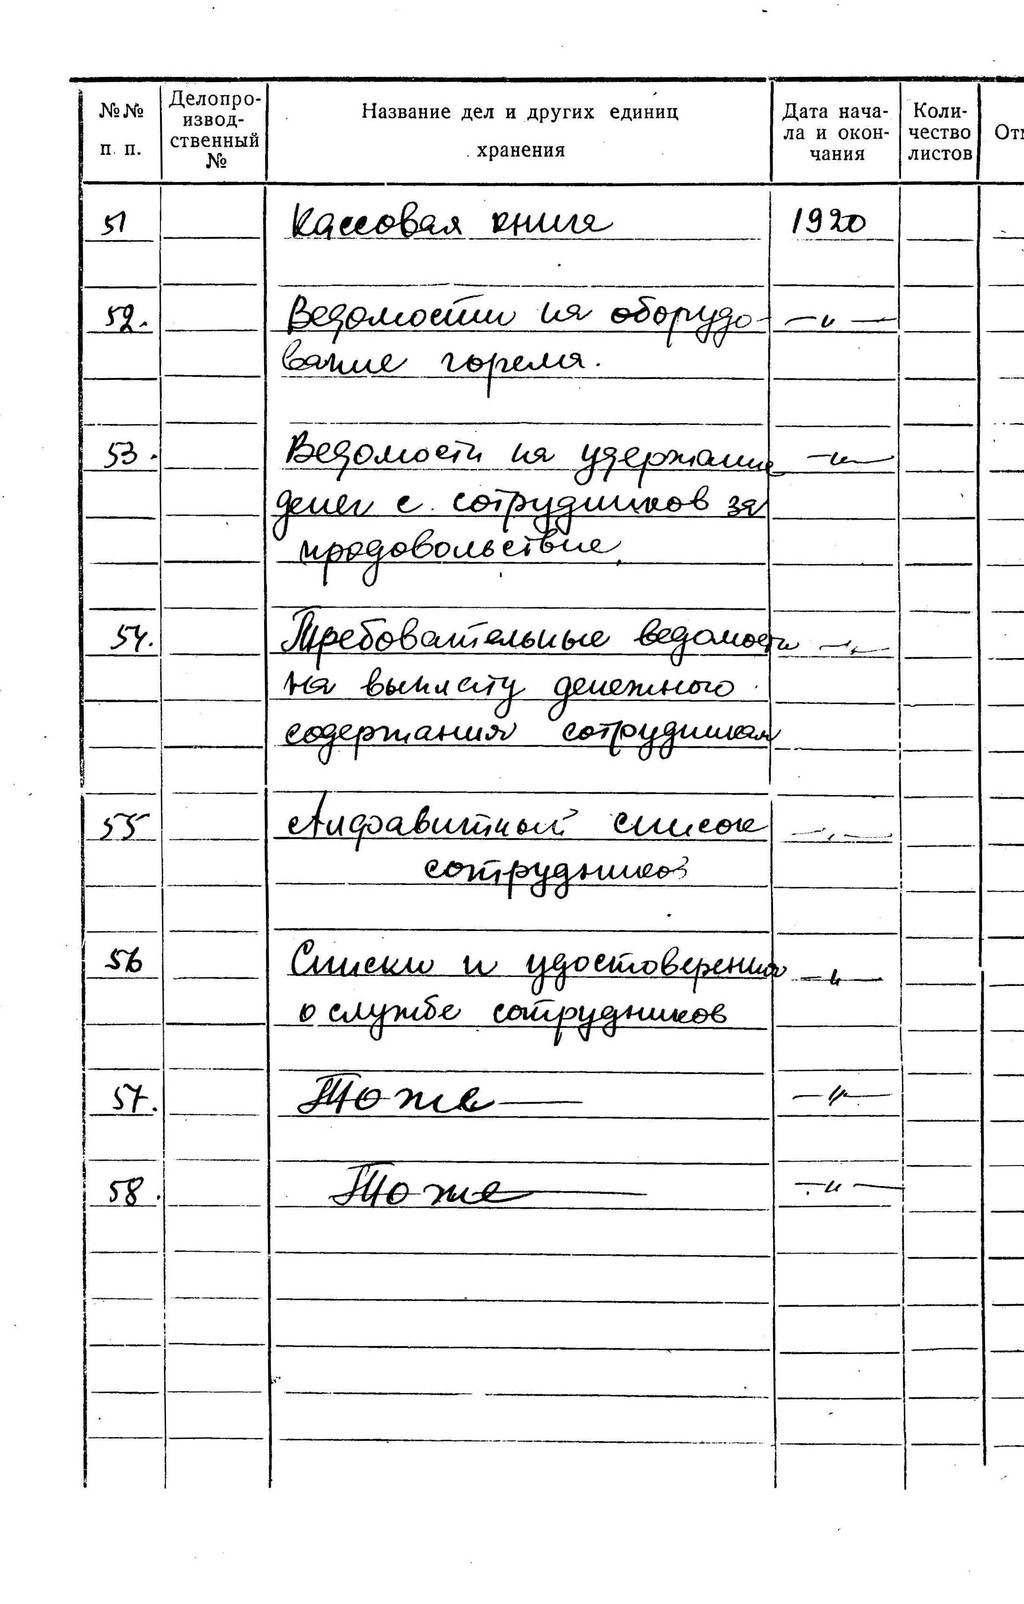 №№ п. п.
Делопро-
извод-
ственный
№
Название дел и других единиц
хранения
Дата нача-
ла и окон-
чания
Коли-
чество
листов
51 Кассовая книга 1920
52. Ведомости на оборудо- —"—
вание горема.
53. Ведомости на удержание —"—
денег с сотрудников за
продовольствие.
54. Требовательные ведомости —"—
на выплату денежного
содержания сотрудникам
55 Алфавитный список —"—
сотрудников
56 Списки и удостоверения —"—
о службе сотрудников
57. То же —— —"—
58. То же —— —"—